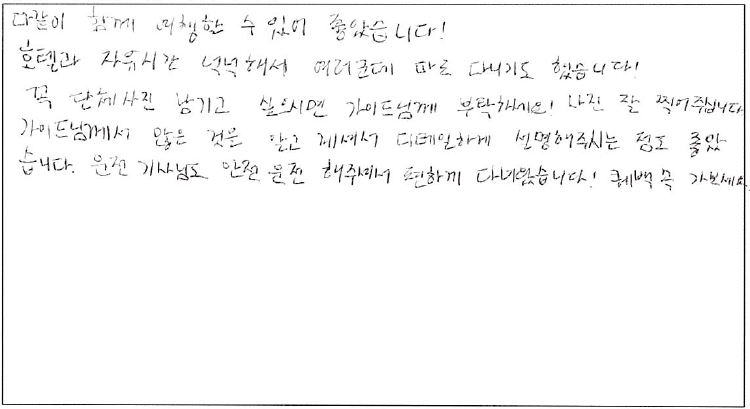 다같이 함께 여행할 수 있어 좋았습니다!
호텔과 자유시간 넉넉해서 여러군데 따로 다니기도 했습니다!
꼭 단체사진 남기고 싶으시면 가이드님께 부탁하세요! 사진 잘 찍어주십니다
가이드님께서 많은 것을 알고 계셔서 디테일하게 설명해주시는 점도 좋았
습니다. 운전 기사님도 안전 운전 해주셔서 편하게 다녀왔습니다! 퀘백 꼭 가보세요